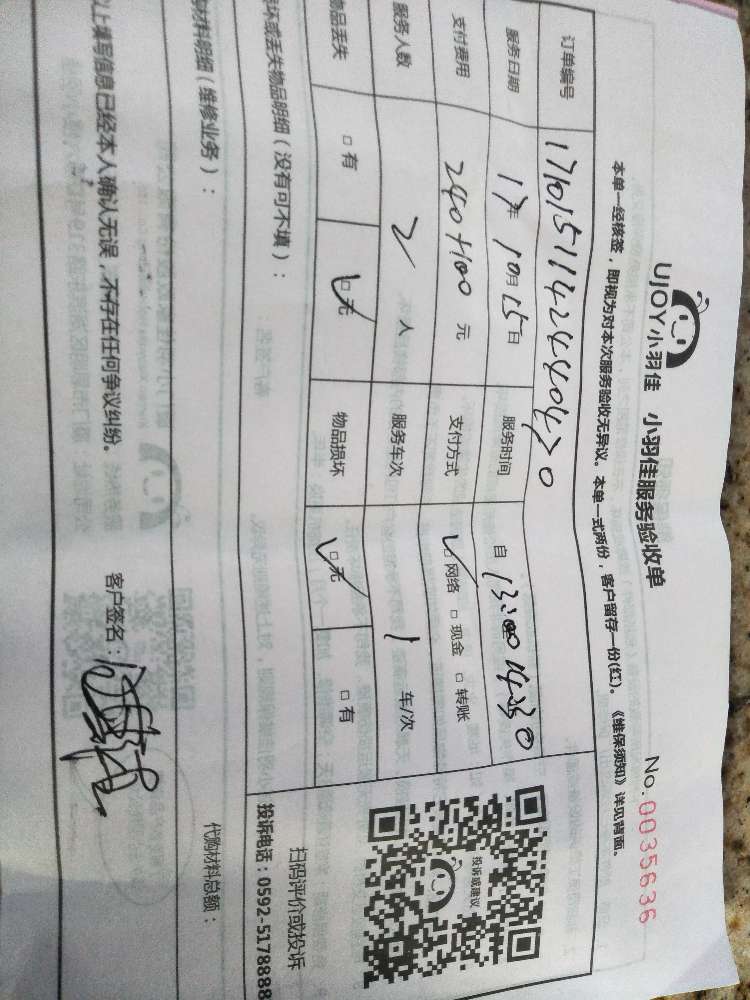 UJOY小羽佳 小羽佳服务验收单 No.0035636
本单一经核签，即视为对本次服务验收无异议。本单一式两份，客户留存一份(红)。《维保须知》详见背面。
订单编号
服务日期 17年 10月 15日 服务时间 自 13:00 14:30
支付费用 240+100 元 支付方式 网络 现金 转账
服务人数 2 人 服务车次 1 车/次
物品丢失 有 无 物品损坏 无 有
坏或丢失物品明细（没有可不填）：
材料明细（维修业务）：
代购材料总额：
以上填写信息已经本人确认无误，不存在任何争议纠纷。 客户签名：
投诉或建议
扫码评价或投诉
投诉电话：0592-5178888